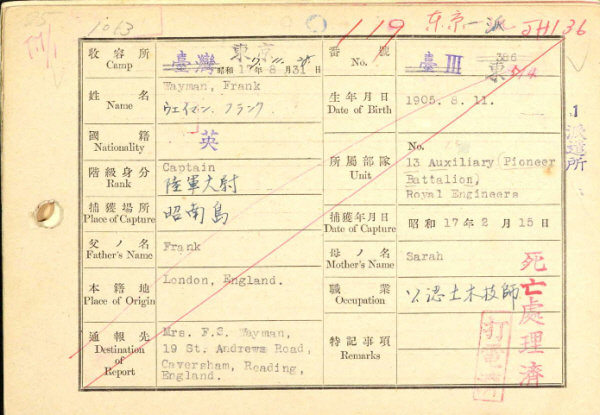 1013
119
东京一派
JH136
收容所
Camp
臺灣
東京
昭和 17年 8月 31日
番號
No.
臺 III
386
東
姓名
Name
Wayman, Frank
ウェイマン. フランク
生年月日
Date of Birth
1905. 8. 11.
國籍
Nationality
英
階級身分
Rank
Captain
陸軍大尉
所屬部隊
Unit
No.
13 Auxiliary (Pioneer
Battalion)
Royal Engineers
捕獲場所
Place of Capture
昭南島
捕獲年月日
Date of Capture
昭和 17年 2月 15日
父ノ名
Father's Name
Frank
母ノ名
Mother's Name
Sarah
本籍地
Place of Origin
London, England.
職業
Occupation
土木技師
通報先
Destination of Report
Mrs. F.S. Wayman,
19 St. Andrews Road,
Caversham, Reading,
England.
特記事項
Remarks
死亡處理済
打電済
派遣所